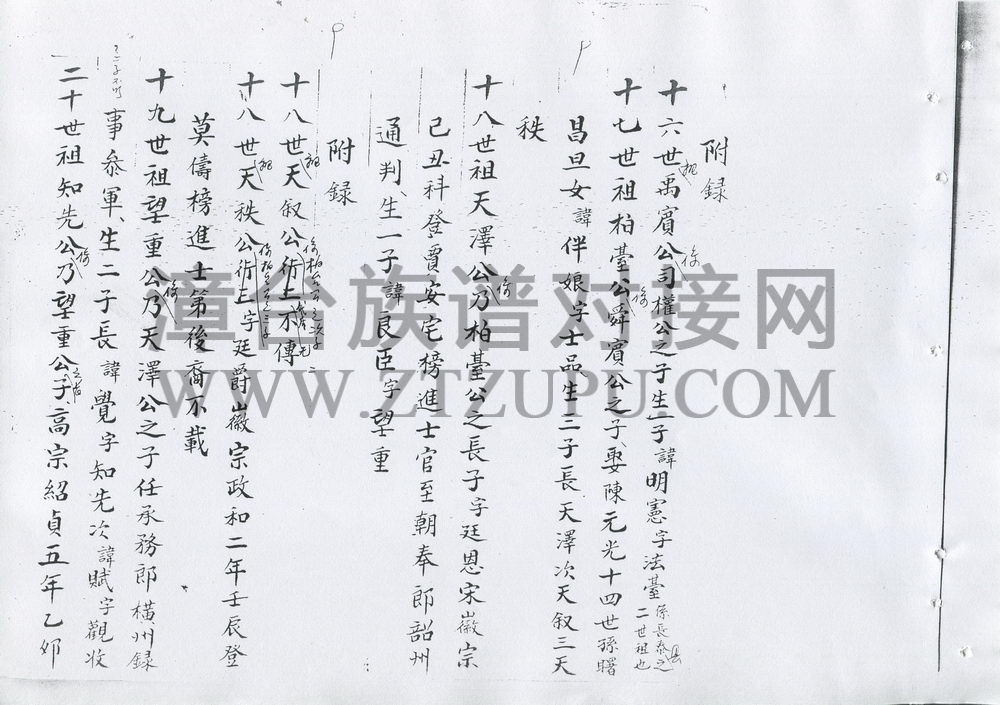 附录
十六世祖禹賓公係司權公之子生一子諱明憲字法臺係長泰之二世祖也
十七世祖柏臺公係舜賓公之子娶陳元光十四世孫曙
昌旦女諱伴娘字士品生三子長天澤次天叙三天
秩
十八世祖天澤公乃係柏臺公之長子字廷恩宋徽宗
己丑科登賈安宅榜進士官至朝奉郎韶州
通判生一子諱良臣字望重
附録
十八世祖天叙公
十八世祖天秩公衍三字廷爵徽宗政和二年壬辰登
莫儔榜進士第後裔不載
十九世祖望重公乃係天澤公之子任承務郎橫州録
事叅軍生二子長諱覺字知先次諱賦字觀妝
二十世祖知先公乃係望重公子高宗紹貞五年乙夘
漳台族谱对接网
WWW.ZTZUPU.COM